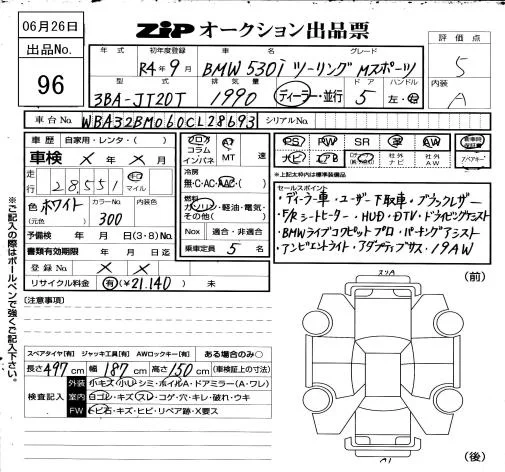 06月26日
出品No.
96
ZIP オークション出品票
評価点
5
内装
A
年式 初年度登録 車名 グレード
R4年9月 BMW 530i ツーリング Mスポーツ
型式 排気量 ドア ハンドル
3BA-JT20T 1990 ディーラー・並行 5 左・右
車台No. WBA32BM060CL28693 シリアルNo.
車歴 自家用・レンタ・( )
車検 × 年 × 月
走行 28,551 キロ マイル
色 ホワイト (元色) カラーNo. 300 内装色
予備検 年 月 日(3・8)No.
書類有効期限 年 月 日迄
登録No. × ×
リサイクル料金 有(¥21,140) 未
フロア コラム インパネ
AT MT 速
冷房 無・C・AC・AAC・( )
燃料 ガソリン・軽油・電気・その他( )
Nox 適合・非適合
乗車定員 5 名
PS PW SR 革 AW
ナビ エアB 社外ナビ 社外AW スペアキー
*上記太枠内は標準装備品
セールスポイント
・ディーラー車・ユーザー下取車・ブラックレザー
・F/Rシートヒーター・HUD・DTV・ドライビングアシスト
・BMWライブコクピットプロ・パーキングアシスト
・アンビエントライト・アダプティブサス・19AW
※ご記入の際はボールペンで強くご記入下さい。
[注意事項]
スペアタイヤ[有] ジャッキ工具[有] AWロックキー[有] ある場合のみ○
長さ497cm 幅187cm 高さ150cm (車検証上の寸法)
検査記入
外装 小キズ・小凹・シミ・ホイルA・ドアミラー(A・ワレ)
室内 ヨゴレ・キズ・スレ・コゲ・穴・キレ・破れ・ウキ
FW トビ石・キズ・ヒビ・リペア跡・X要ス
(前)
(後)